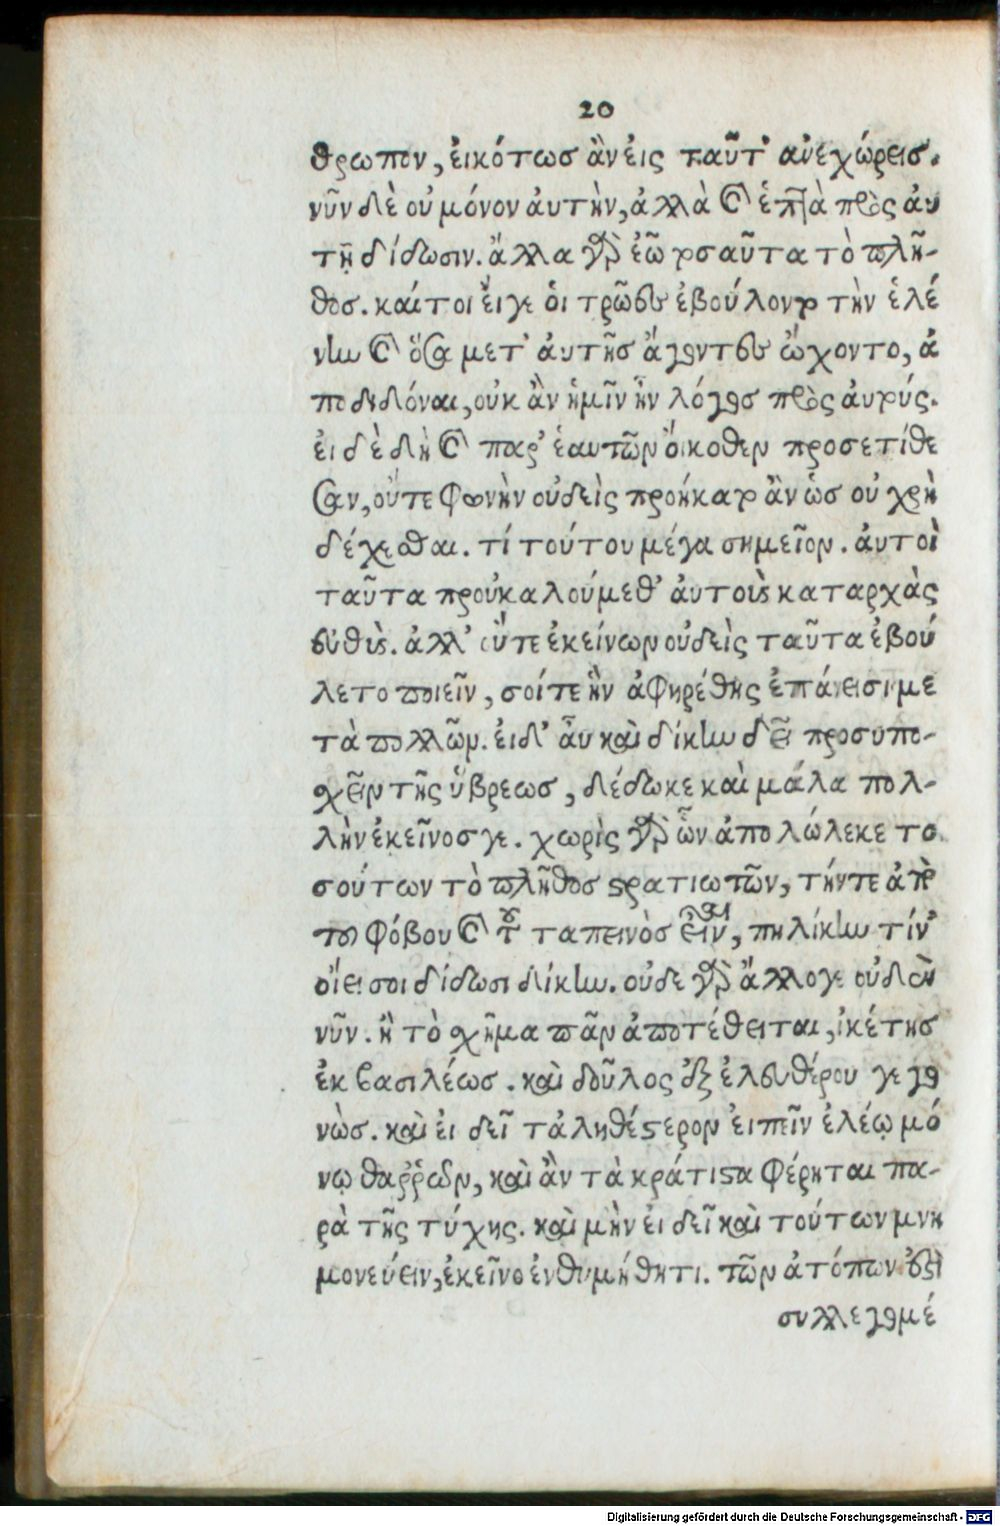 20
θρωπον, ἐικότωσ ἂν ἐις ταῦτ' ἀνεχώρεισ.
νῦν δὲ οὐ μόνον ἀυτὴν, ἀλλὰ καὶ ἑπτὰ πρὸς ἀυ
τῇ δίδωσιν. ἄλλα γὰρ ἐῶ τοσαῦτα τὸ πλῆ-
θοσ. καίτοι ἔιγε ὁι τρῶες ἐβούλοντο τὴν ἑλέ
νην καὶ ὅσα μετ' ἀυτῆσ ἄγοντες ὤχοντο, ἀ
ποδιδόναι, οὐκ ἂν ἡμῖν ἦν λόγοσ πρὸς ἀυτούς.
ἐι δὲ δὴ καὶ παρ' ἑαυτῶν ὄικοθεν προσετίθε
σαν, οὔτε φωνὴν οὐδεὶς προήκατο ἂν ὡσ οὐ χρὴ
δέχεσθαι. τί τούτου μέγα σημεῖον. ἀυτοὶ
ταῦτα προὐκαλούμεθ' ἀυτοὺς καταρχὰς
εὐθὺς. ἀλλ' οὔτε ἐκείνων οὐδεὶς ταῦτα ἐβού
λετο ποιεῖν, σοίτε ἣν ἀφηρέθης ἐπάνεισι με
τὰ πολλῶν. ἐιδ' ἆυ καὶ δίκην δεῖ προσυπο-
χεῖν τῆς ὕβρεωσ, δέδωκε καὶ μάλα πολ-
λὴν ἐκεῖνοσ γε. χωρὶς γὰρ ὧν ἀπολώλεκε το
σούτων τὸ πλῆθοσ στρατιωτῶν, τήντε ἀπὸ
του φόβου καὶ τοῦ ταπεινὸσ εἶναι, πηλίκην τίν'
οἴει σοι δίδωσι δίκην. οὐδε γὰρ ἄλλογε οὐδὲν
νῦν. ἢ τὸ σχῆμα πᾶν ἀποτέθειται, ἱκέτησ
ἐκ βασιλέωσ. καὶ δοῦλος ἐξ ἐλευθέρου γεγο
νὼσ. καὶ ἐι δεῖ τἀληθέστερον ἐιπεῖν ἐλέῳ μό
νῳ θαῤῥῶν, καὶ ἂν τὰ κράτιστα φέρηται πα-
ρὰ τῆς τύχης. καὶ μὴν ἐι δεῖ καὶ τούτων μνη
μονεύειν, ἐκεῖνο ἐνθυμήθητι. τῶν ἀτόπων ἐστὶ
συλλεγομέ
Digitalisierung gefördert durch die Deutsche Forschungsgemeinschaft - DFG